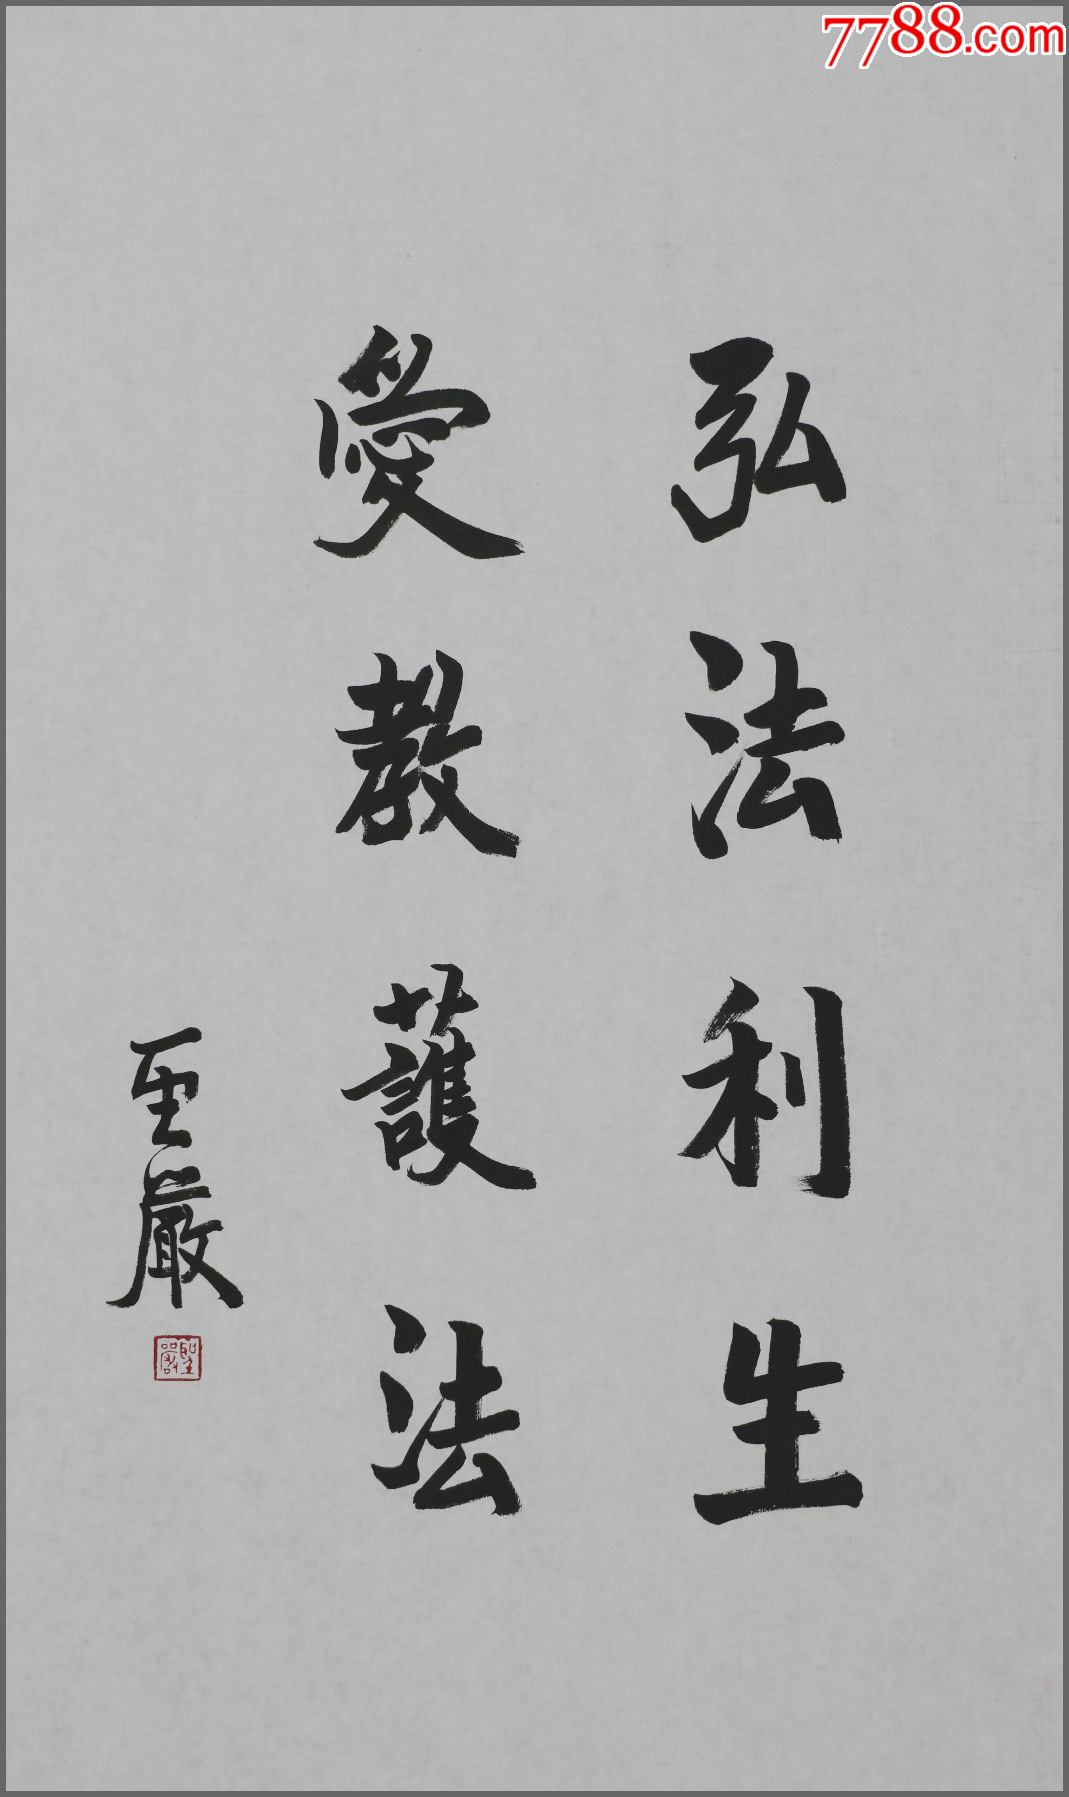 7788.com
弘法利生
愛教護法
聖嚴
聖嚴